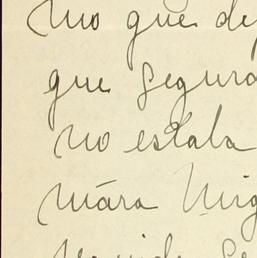 no que de
que segura
no estaba
mára Mig